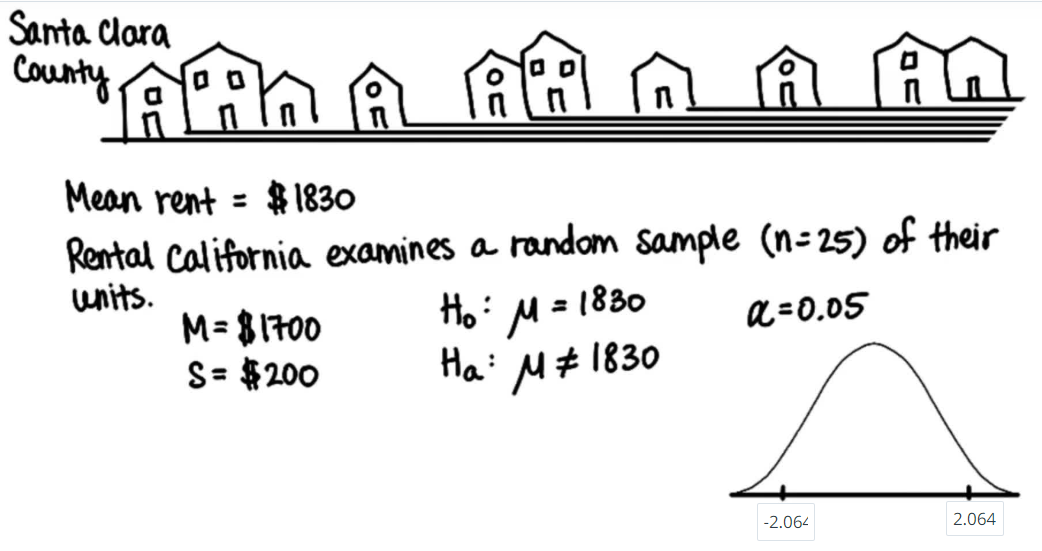 Santa Clara
County
Mean rent = $1830
Rental California examines a random sample (n=25) of their
units.
M = $1700
S = $200
H₀: μ = 1830
Hₐ: μ ≠ 1830
α=0.05
-2.064
2.064